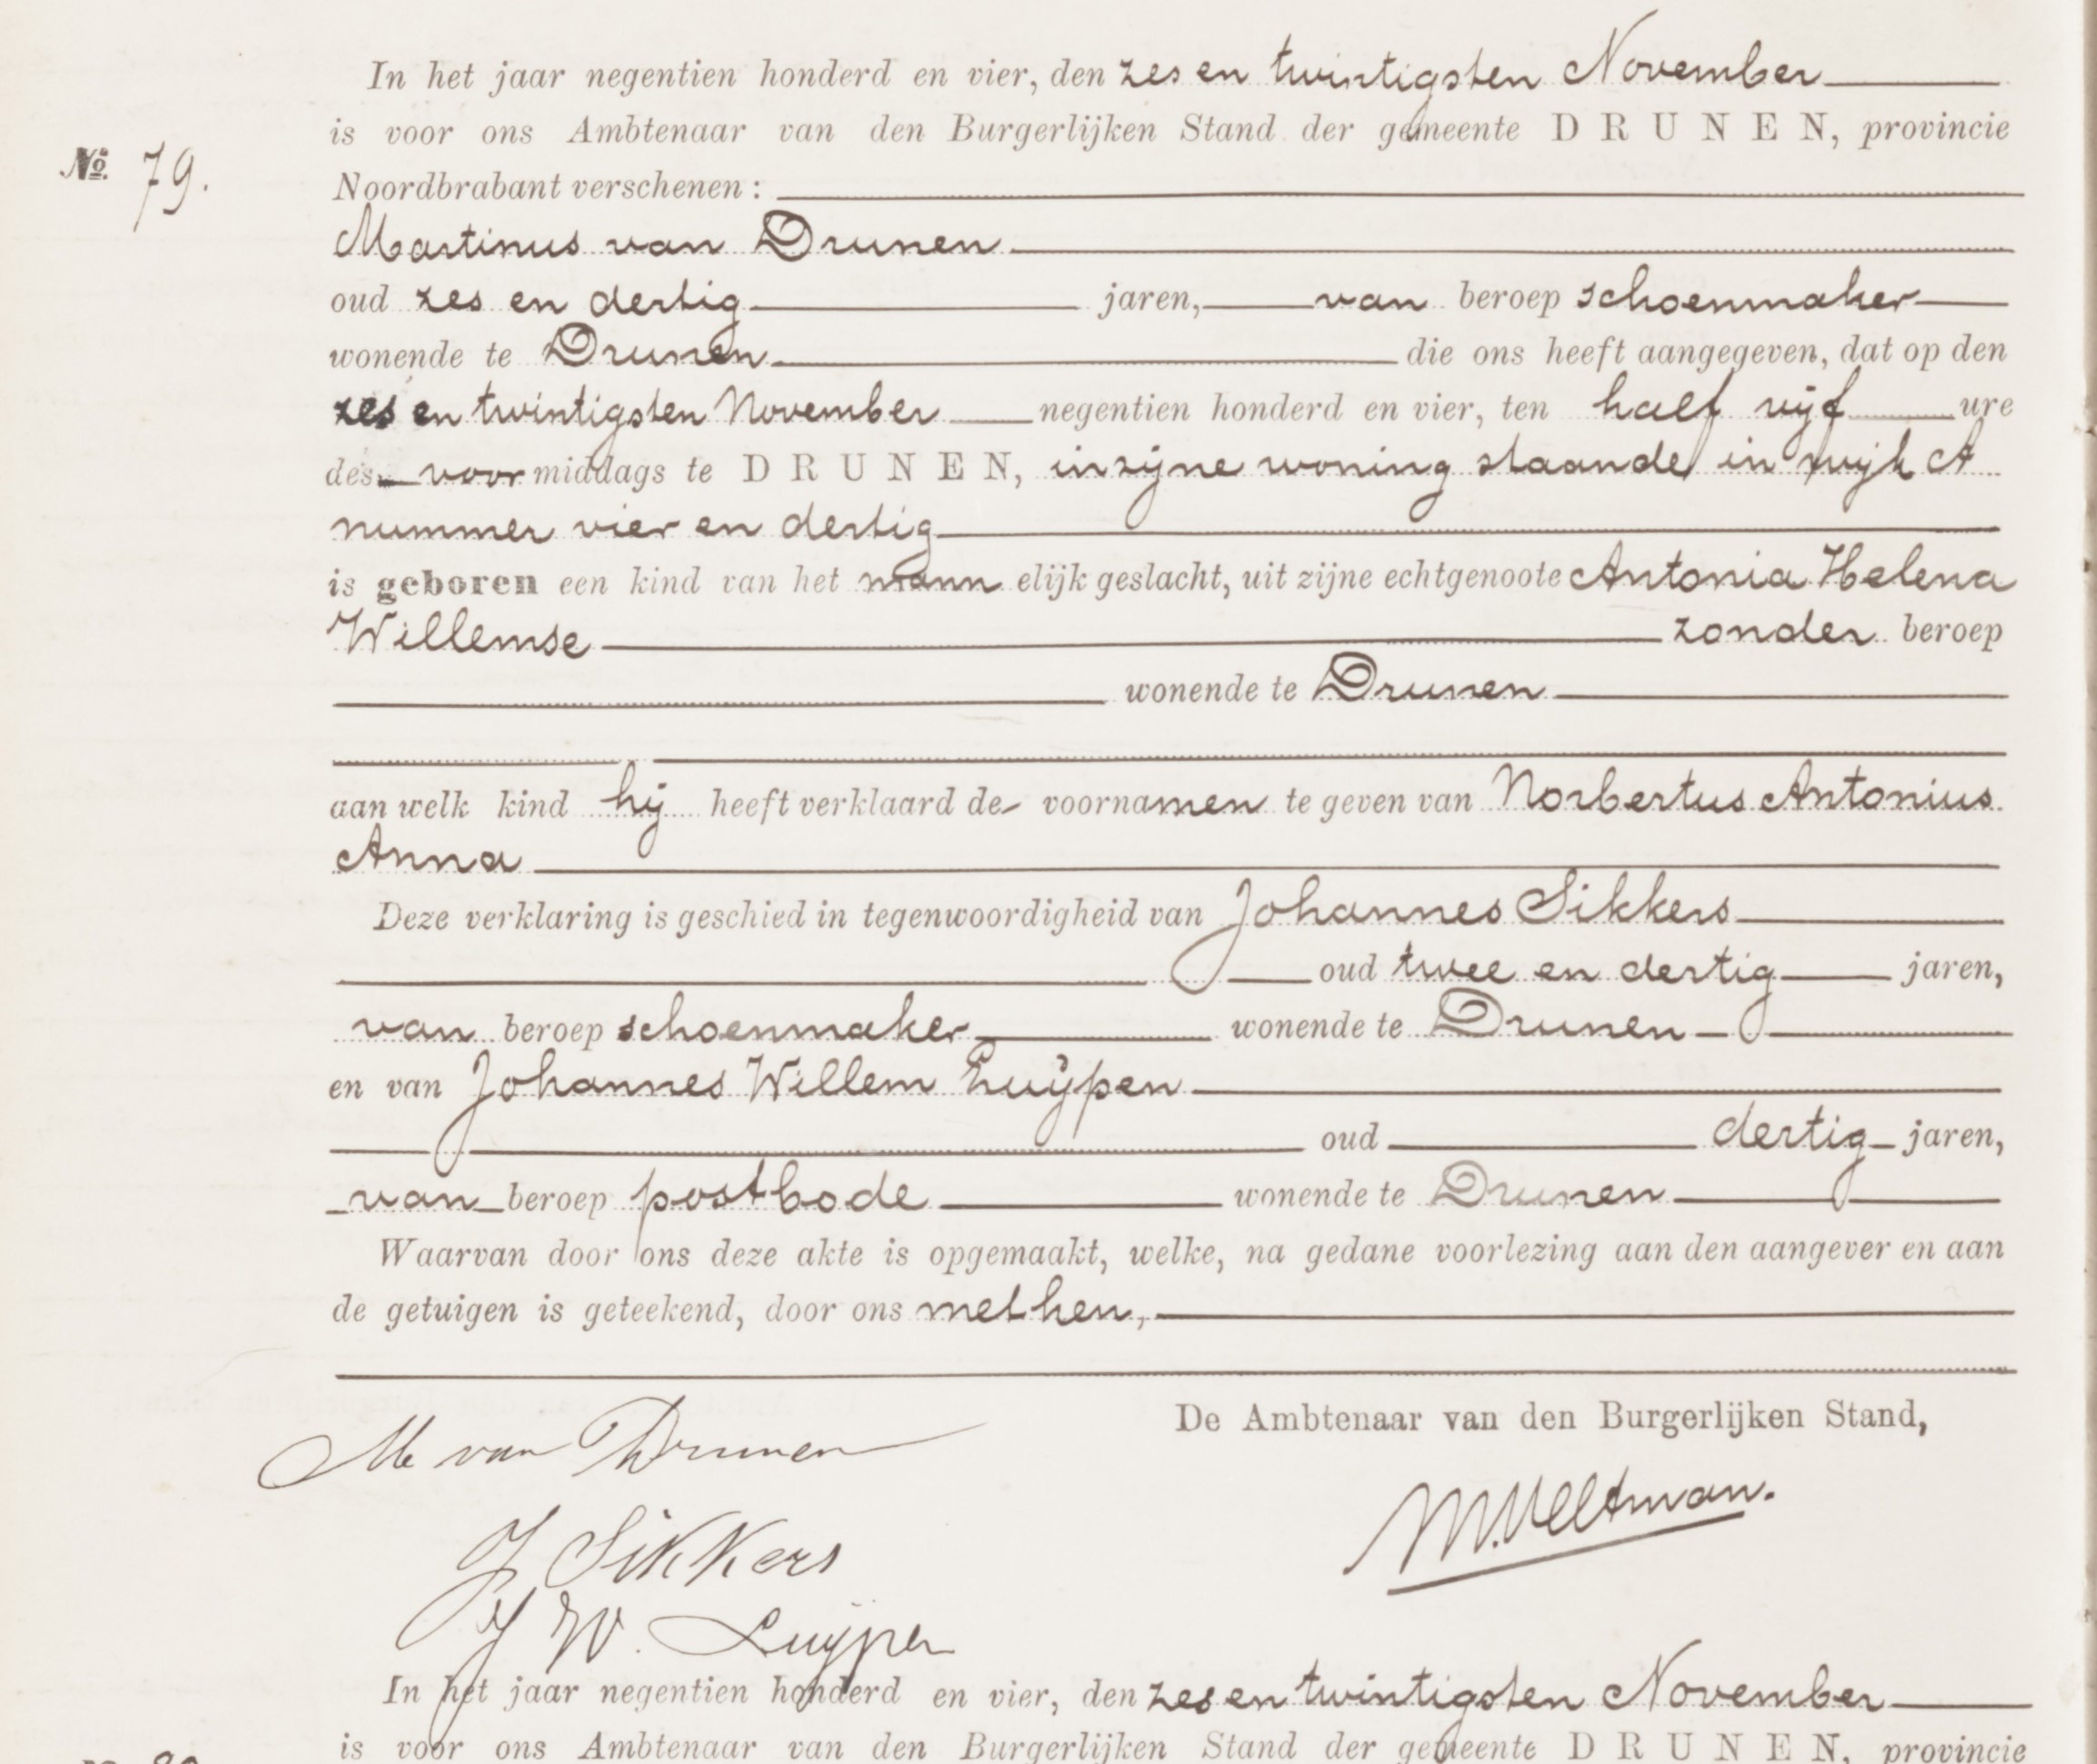 In het jaar negentien honderd en vier, den zes en twintigsten November
is voor ons Ambtenaar van den Burgerlijken Stand der gemeente DRUNEN, provincie
No. 79.
Noordbrabant verschenen:
Martinus van Drunen
oud zes en dertig jaren, van beroep schoenmaker
wonende te Drunen die ons heeft aangegeven, dat op den
zes en twintigsten November negentien honderd en vier, ten half vijf ure
des voor middags te DRUNEN, in zijne woning staande in wijk A
nummer vier en dertig
is geboren een kind van het mann elijk geslacht, uit zijne echtgenoote Antonia Helena
Willemse zonder beroep
wonende te Drunen
aan welk kind hij heeft verklaard de voornamen te geven van Norbertus Antonius
Anna
Deze verklaring is geschied in tegenwoordigheid van Johannes Sikkers
oud twee en dertig jaren,
van beroep schoenmaker wonende te Drunen
en van Johannes Willem Luijpen
oud dertig jaren,
van beroep postbode wonende te Drunen
Waarvan door ons deze akte is opgemaakt, welke, na gedane voorlezing aan den aangever en aan
de getuigen is geteekend, door ons met hen,
De Ambtenaar van den Burgerlijken Stand,
M van Drunen
M. Veltman.
J Sikkers
J W. Luijpen
In het jaar negentien honderd en vier, den zes en twintigsten November
is voor ons Ambtenaar van den Burgerlijken Stand der gemeente DRUNEN, provincie